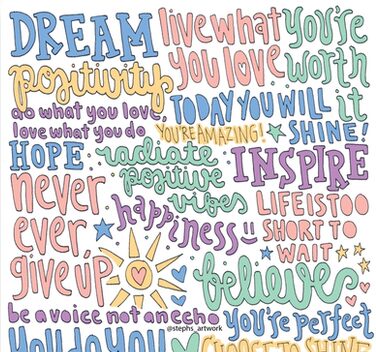 DREAM
live what you love
you're worth it
positivity
do what you love,
love what you do
TODAY YOU WILL SHINE!
YOU'RE AMAZING!
HOPE
radiate positive vibes
INSPIRE
never ever give up
happiness
LIFE IS TOO SHORT TO WAIT
believe
be a voice not an echo
@stephs_artwork
you're perfect
you do you
CHOOSE TO SHINE